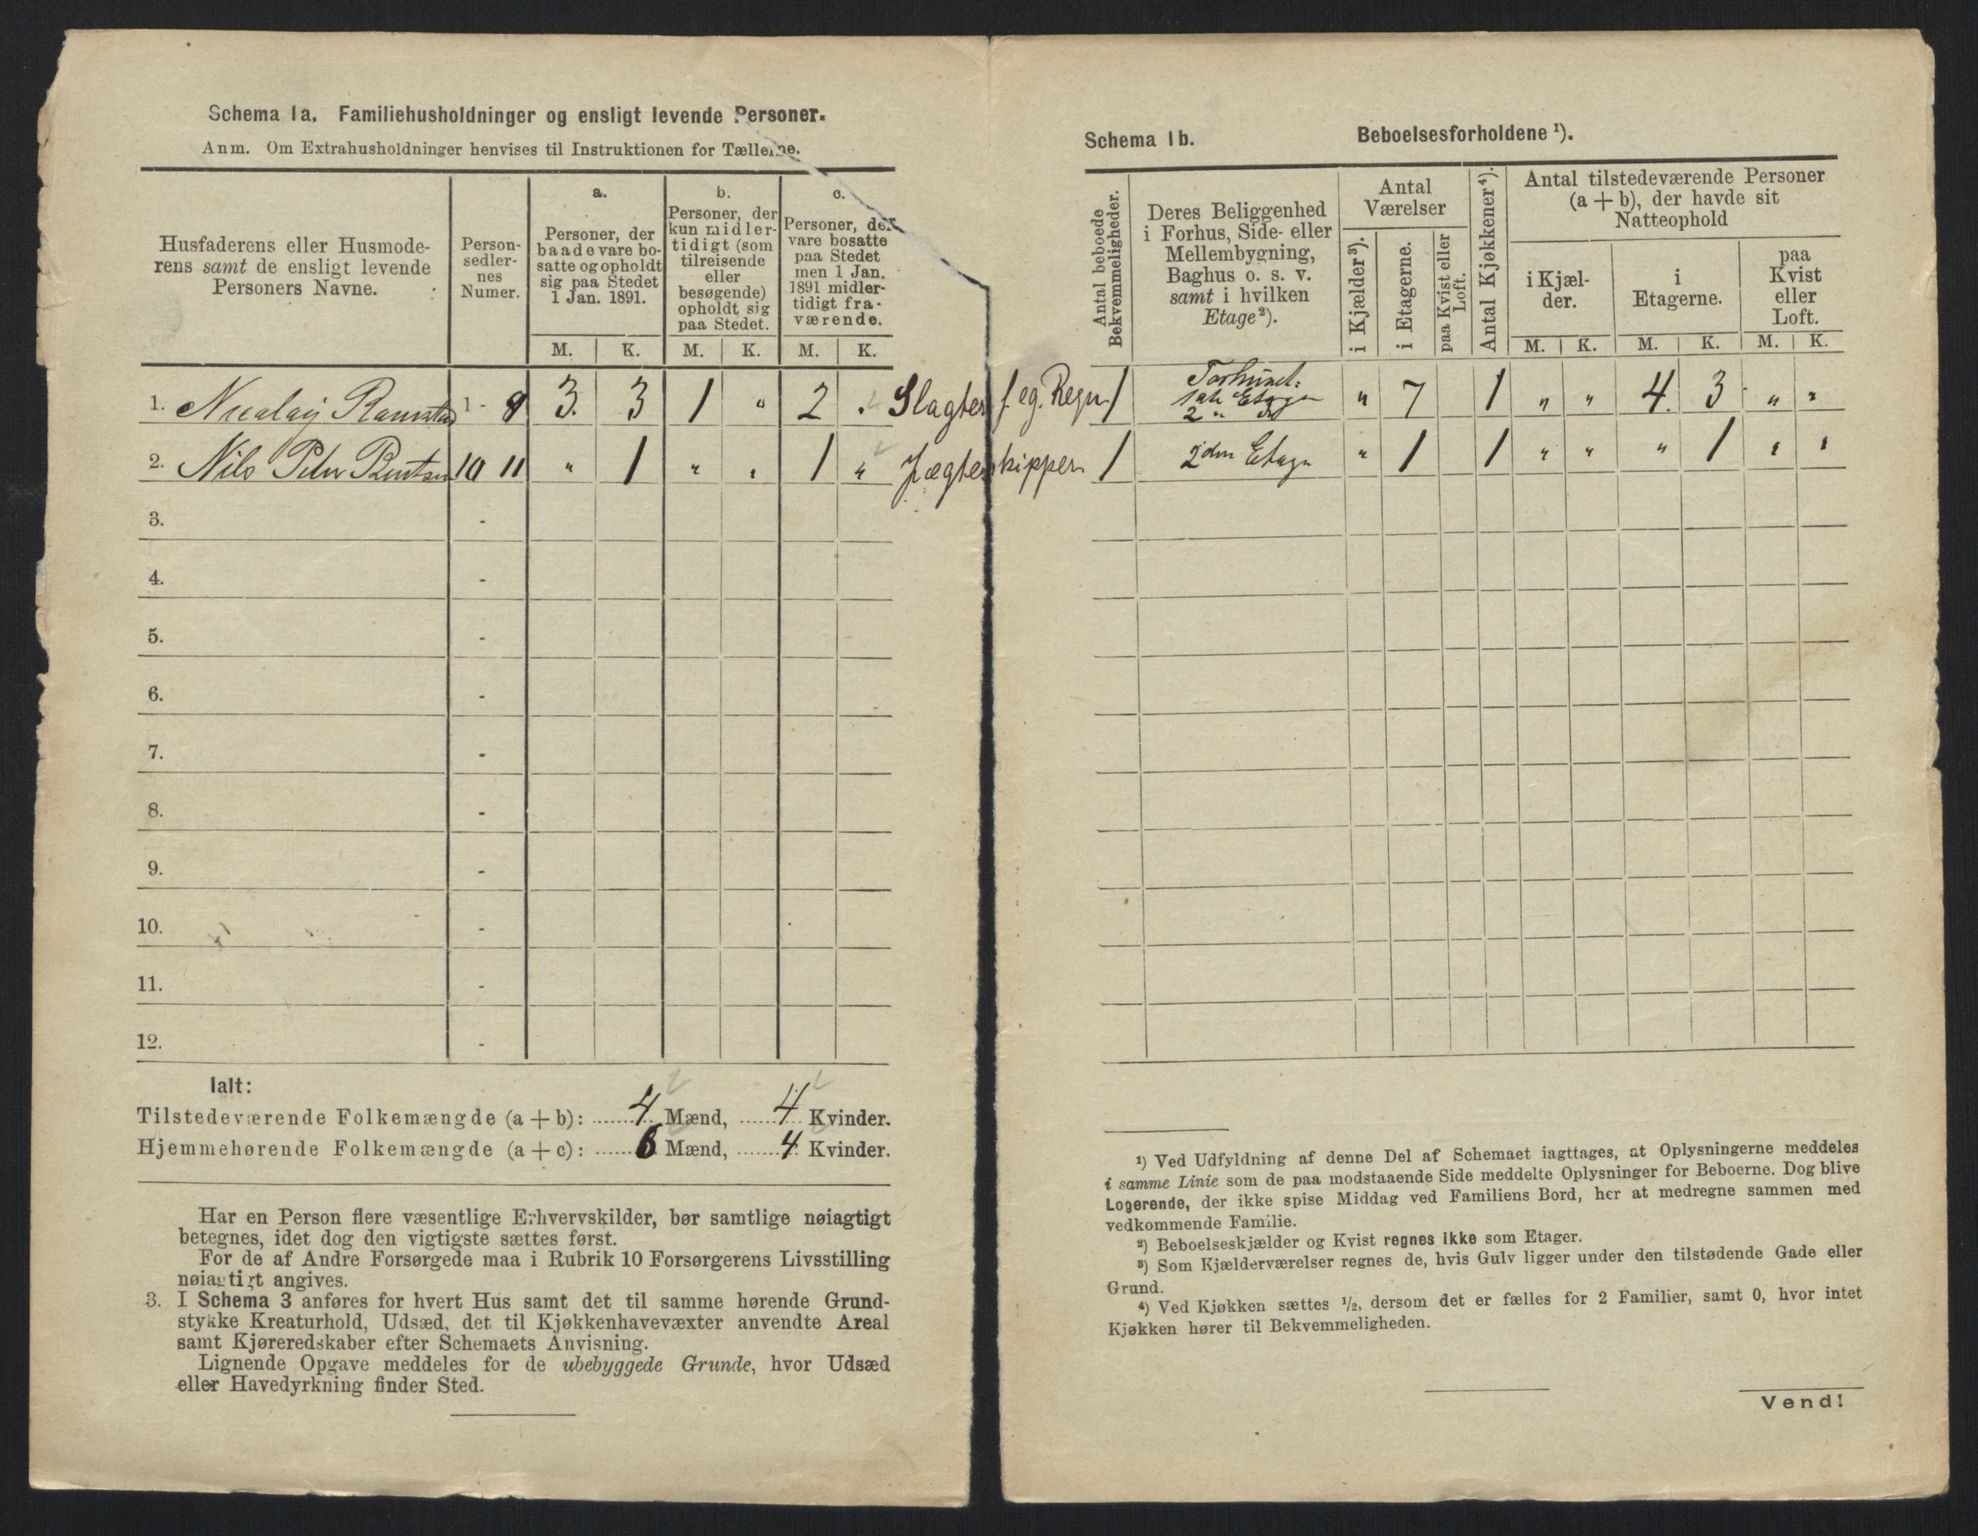 Schema 1a. Familiehusholdninger og ensligt levende Personer.
Anm. Om Extrahusholdninger henvises til Instruktionen for Tællerne.
Husfaderens eller Husmode-
rens samt de ensligt levende
Personers Navne.
Person-
sedler-
nes
Numer.
a.
Personer, der
baade vare bo-
satte og opholdt
sig paa Stedet
1 Jan. 1891.
b.
Personer, der
kun midler-
tidigt (som
tilreisende
eller
besøgende)
opholdt sig
paa Stedet.
c.
Personer, der
vare bosatte
paa Stedet
men 1 Jan.
1891 midler-
tidigt fra-
værende.
M. K. M. K. M. K.
1. Nicolay Ramstad 1 - 9 3. 3 1 " 2 " Slagter f. eg. Regn
2. Nils Peter Bentsen 10 11 " 1 " " 1 " Jægteskipper
3. -
4. -
5. -
6. -
7. -
8. -
9. -
10. -
11. -
12. -
Ialt:
Tilstedeværende Folkemængde (a + b): 4 Mænd, 4 Kvinder.
Hjemmehørende Folkemængde (a + c): 6 Mænd, 4 Kvinder.
Har en Person flere væsentlige Erhvervskilder, bør samtlige nøiagtigt
betegnes, idet dog den vigtigste sættes først.
For de af Andre Forsørgede maa i Rubrik 10 Forsørgerens Livsstilling
nøiagtigt angives.
3. I Schema 3 anføres for hvert Hus samt det til samme hørende Grund-
stykke Kreaturhold, Udsæd, det til Kjøkkenhavevæxter anvendte Areal
samt Kjøreredskaber efter Schemaets Anvisning.
Lignende Opgave meddeles for de ubebyggede Grunde, hvor Udsæd
eller Havedyrkning finder Sted.
Schema 1b. Beboelsesforholdene ¹).
Antal beboede
Bekvemmeligheder.
Deres Beliggenhed
i Forhus, Side- eller
Mellembygning,
Baghus o. s. v.
samt i hvilken
Etage²).
Antal
Værelser
i Kjælder³).
i Etagerne.
paa Kvist eller
Loft.
Antal Kjøkkener⁴).
Antal tilstedeværende Personer
(a + b), der havde sit
Natteophold
i Kjæl-
der.
i
Etagerne.
paa
Kvist
eller
Loft.
M. K. M. K. M. K.
1 Forhuset:
1ste Etage
2 " do
" 7 1 " " 4. 3 " "
1 2den Etage " 1 1 " " " 1 " "
¹) Ved Udfyldning af denne Del af Schemaet iagttages, at Oplysningerne meddeles
i samme Linie som de paa modstaaende Side meddelte Oplysninger for Beboerne. Dog blive
Logerende, der ikke spise Middag ved Familiens Bord, her at medregne sammen med
vedkommende Familie.
²) Beboelseskjælder og Kvist regnes ikke som Etager.
³) Som Kjælderværelser regnes de, hvis Gulv ligger under den tilstødende Gade eller
Grund.
⁴) Ved Kjøkken sættes ½, dersom det er fælles for 2 Familier, samt 0, hvor intet
Kjøkken hører til Bekvemmeligheden.
Vend!